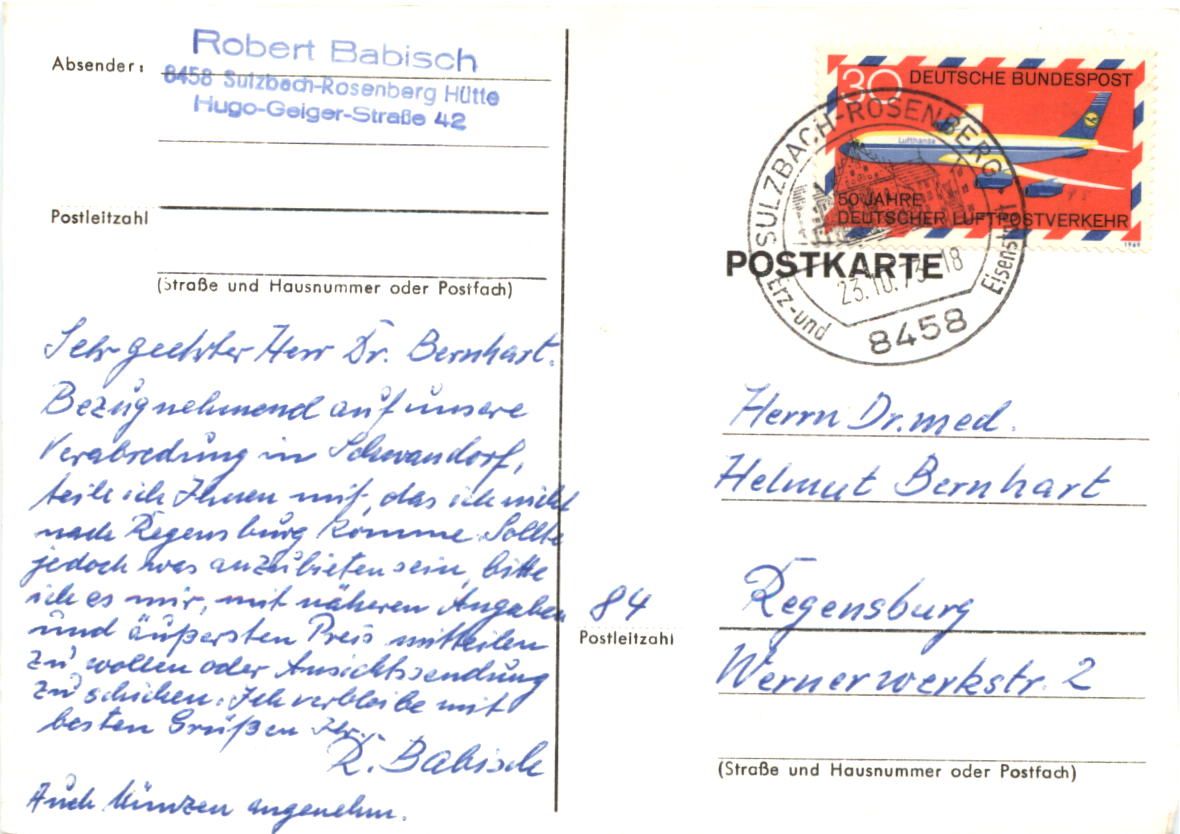 Absender:
Robert Babisch
8458 Sulzbach-Rosenberg Hütte
Hugo-Geiger-Straße 42
Postleitzahl
(Straße und Hausnummer oder Postfach)
Sehr geehrter Herr Dr. Bernhart.
Bezugnehmend auf unsere
Verabredung in Schwandorf,
teile ich Ihnen mit, das ich nicht
nach Regensburg komme. Sollte
jedoch was anzubieten sein, bitte
ich es mir, mit näheren Angaben
und äußersten Preis mitteilen
zu wollen oder Ansichtssendung
zu schicken. Ich verbleibe mit
besten Grüßen Ihr.
R. Babisch
Auch Münzen angenehm.
30 DEUTSCHE BUNDESPOST
Lufthansa
50 JAHRE
DEUTSCHER LUFTPOSTVERKEHR
1969
SULZBACH-ROSENBERG
23.10.73-18
Erz-und Eisenstadt
8458
POSTKARTE
Herrn Dr. med.
Helmut Bernhart
84
Postleitzahl
Regensburg
Wernerwerkstr. 2
(Straße und Hausnummer oder Postfach)